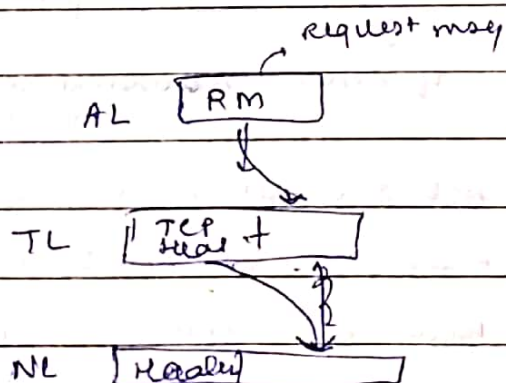 request msg
AL RM
TL TCP +
NL Header